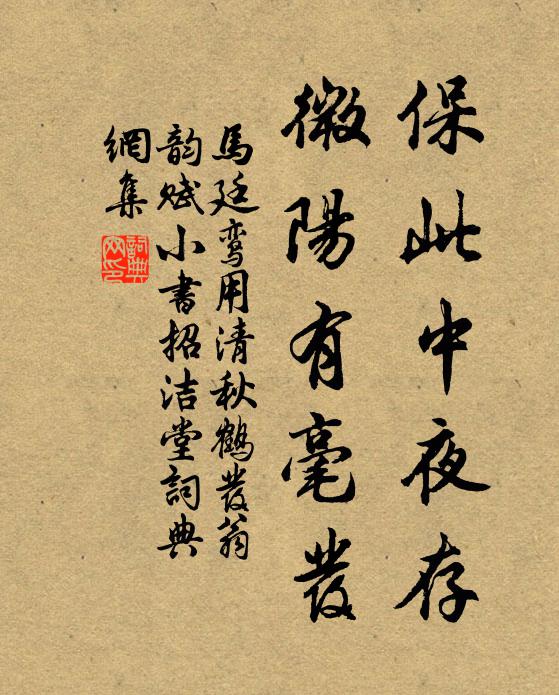 保此中夜存
微陽有毫發
馬廷鸾用清秋鶴發翁
韵赋小書招洁堂詞典
網集
詞典
网印